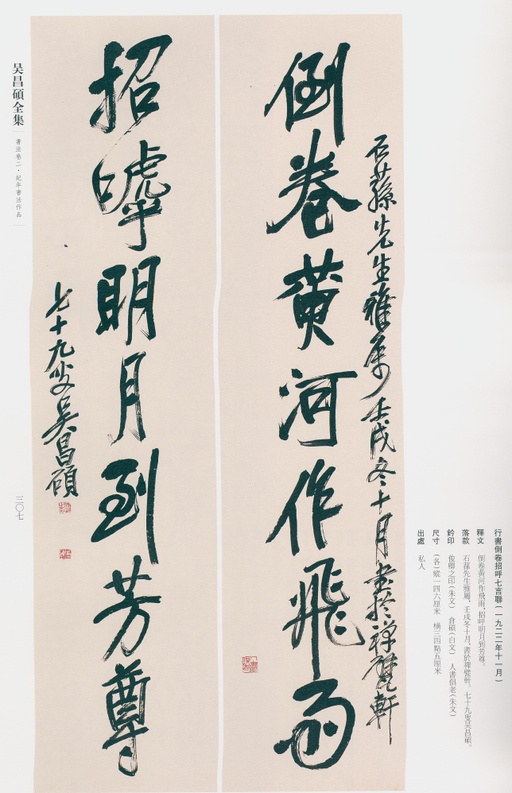 倒卷黄河作飛雨
石蓀先生雅属少壬戌冬十月書於禅甓軒
招嘑明月到芳尊
七十九叟吴昌碩
吴昌碩全集
書法卷二·紀年書法作品
三〇七
行書倒卷招呼七言聯(一九二二年十一月)
釋文 倒卷黄河作飛雨,招呼明月到芳尊。
落款 石蓀先生雅屬,壬戌冬十月,書於禪甓軒,七十九叟吴昌碩。
鈐印 俊卿之印(朱文) 倉碩(白文) 人書俱老(朱文)
尺寸 (各)縱一四六厘米 橫三四點五厘米
出處 私人